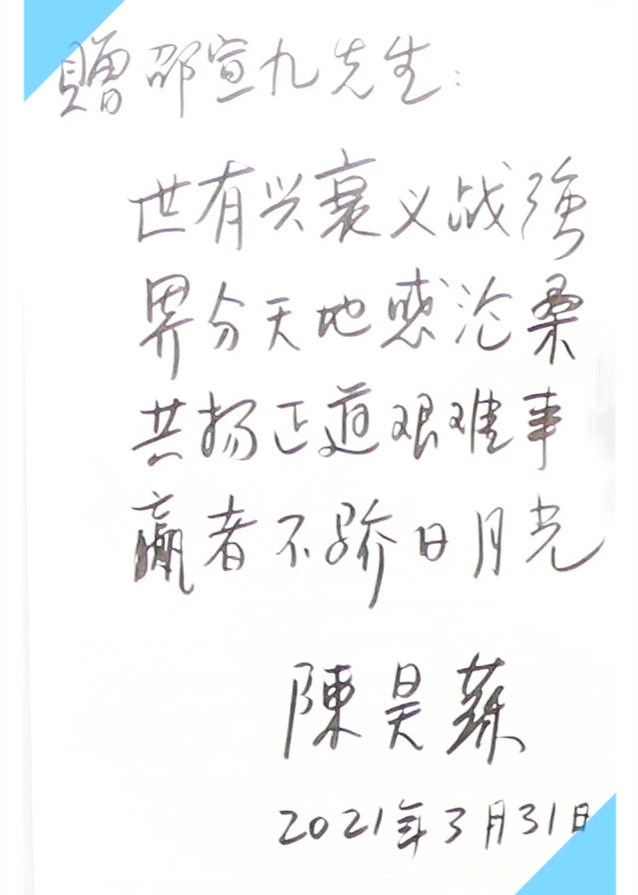 贈邵宣九先生:
世有兴衰义战强
界分天地感沧桑
共扬正道艰难事
赢者不骄日月光
陳昊蘇
2021年3月31日